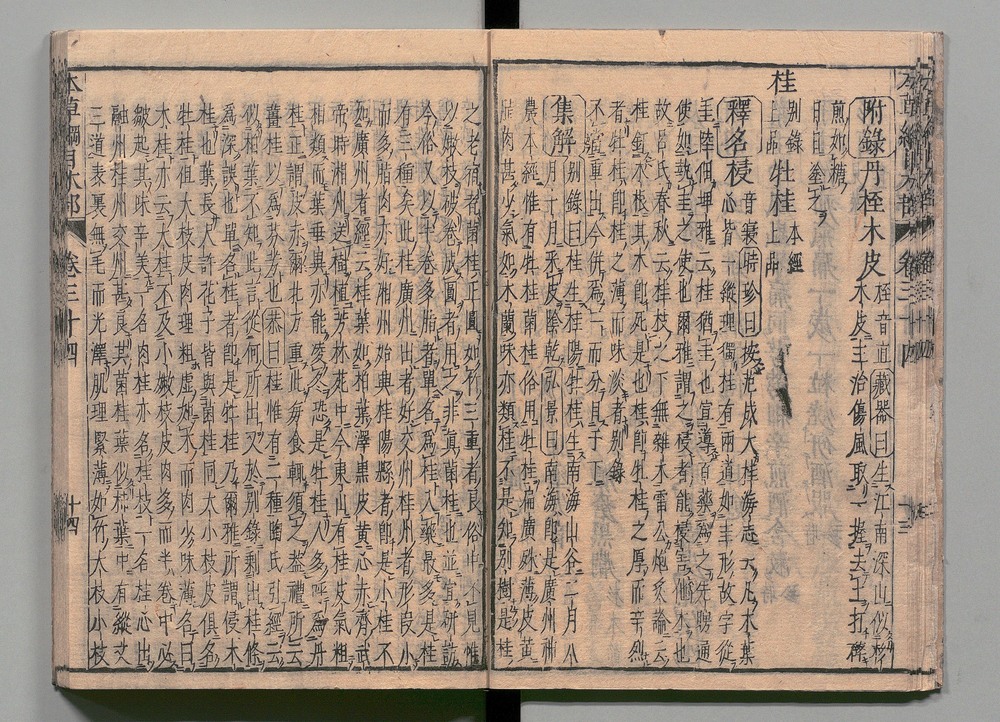 附錄丹桎木皮 桎音直 藏器曰生江南深山似杉
木皮主治傷風取一握去土打碎
煎如糖
日日塗之
桂 別錄上品 牡桂 本經上品
釋名梫 音寢 時珍曰按范成大桂海志云凡木葉
心皆一縱理獨桂有兩道如圭形故字從
圭陸佃埤雅云桂猶圭也宣導百藥為之先聘通
使如執圭之使也爾雅謂之梫者能侵害他木也
故呂氏春秋云桂枝之下無雜木雷公炮炙論云
桂釘木根其木即死是也桂即牡桂之厚而辛烈
者牡桂即桂之薄而味淡者別錄
不當重出今併為一而分目于下
集解 別錄曰桂生桂陽牡桂生南海山谷二月八
月十月采皮陰乾弘景曰南海即是廣州神
農本經惟有牡桂菌桂俗用牡桂扁廣殊薄皮黃
脂肉甚少氣如木蘭味亦類桂不知是別樹是桂
之老宿者菌桂正圓如竹三重者良俗中不見惟
以嫩枝破卷成圓者用之非真菌桂也並宜研訪
今俗又以半卷多脂者單名為桂入藥最多是桂
有三種矣此桂廣州出者好交州桂州者形段小
而多脂肉亦好湘州始興桂陽縣者即是小桂不
如廣州者經云桂葉如柏葉澤黑皮黃心赤齊武
帝時湘州送樹植芳林苑中今東山有桂皮氣粗
相類而葉乖異亦能凌冬恐是牡桂人多呼為丹
桂正謂皮赤爾北方重此每食輒須之蓋禮所云
薑桂以為芬芳也恭曰桂惟有二種陶氏引經云
似柏葉不知此言從何所出又於別錄剩出桂條
為深誤也單名桂者即是牡桂乃爾雅所謂梫木
桂也葉長尺許花子皆與菌桂同大小枝皮俱名
牡桂大枝皮肉理粗虛如木而肉少味薄名曰
木桂亦云大桂不及小嫩枝皮肉多而半卷中必
皺起其味辛美一名肉桂亦名桂枝一名桂心出
融州桂州交州甚良其菌桂葉似柿葉中有縱文
三道表裏無毛而光澤肌理緊薄如竹大枝小枝
本草綱目木部 卷三十四 十四